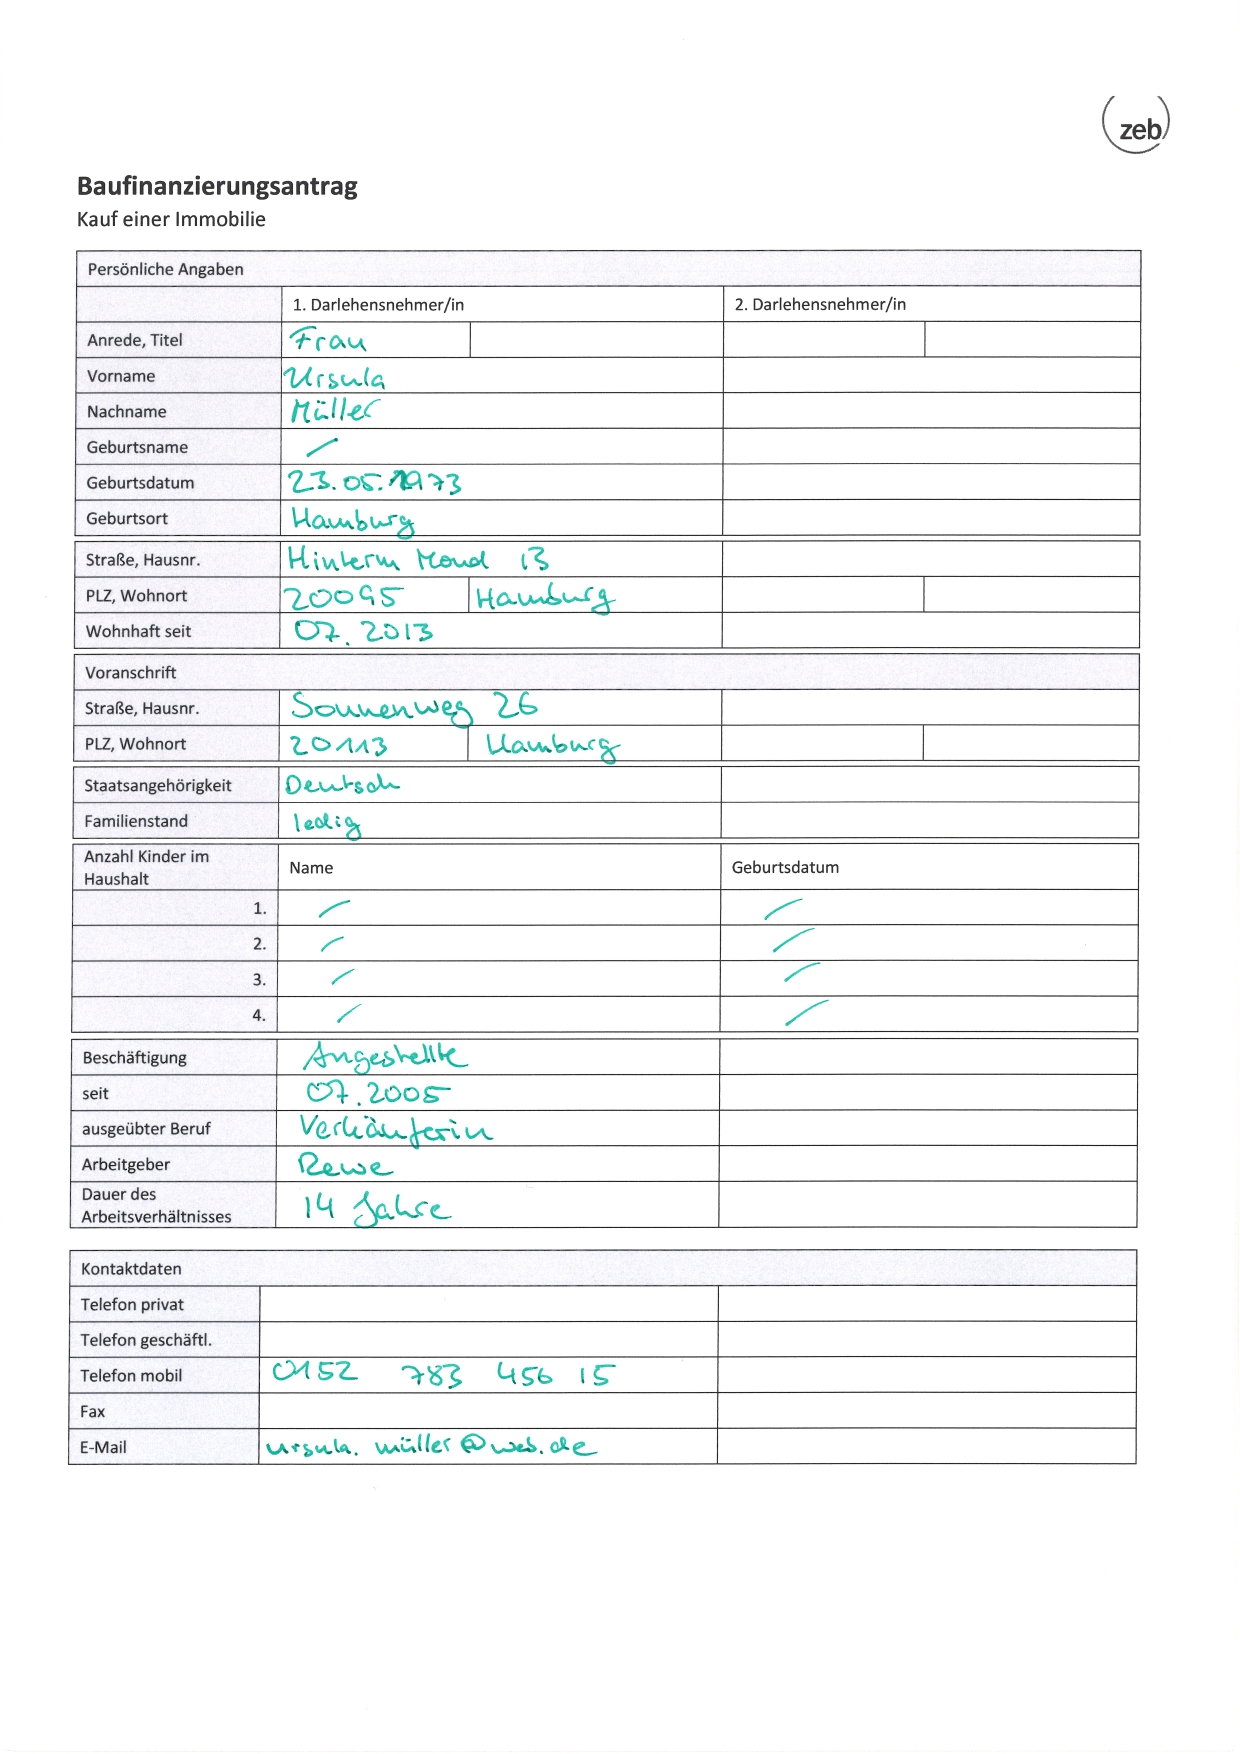 zeb
Baufinanzierungsantrag
Kauf einer Immobilie
Persönliche Angaben
1. Darlehensnehmer/in 2. Darlehensnehmer/in
Anrede, Titel Frau
Vorname Ursula
Nachname Müller
Geburtsname /
Geburtsdatum 23.05.1973
Geburtsort Hamburg
Straße, Hausnr. Hinterm Mond 13
PLZ, Wohnort 20095 Hamburg
Wohnhaft seit 07.2013
Voranschrift
Straße, Hausnr. Sonnenweg 26
PLZ, Wohnort 20113 Hamburg
Staatsangehörigkeit Deutsch
Familienstand ledig
Anzahl Kinder im
Haushalt Name Geburtsdatum
1. / /
2. / /
3. / /
4. / /
Beschäftigung Angestellte
seit 07.2005
ausgeübter Beruf Verkäuferin
Arbeitgeber Rewe
Dauer des
Arbeitsverhältnisses 14 Jahre
Kontaktdaten
Telefon privat
Telefon geschäftl.
Telefon mobil 0152 783 456 15
Fax
E-Mail ursula.müller@web.de